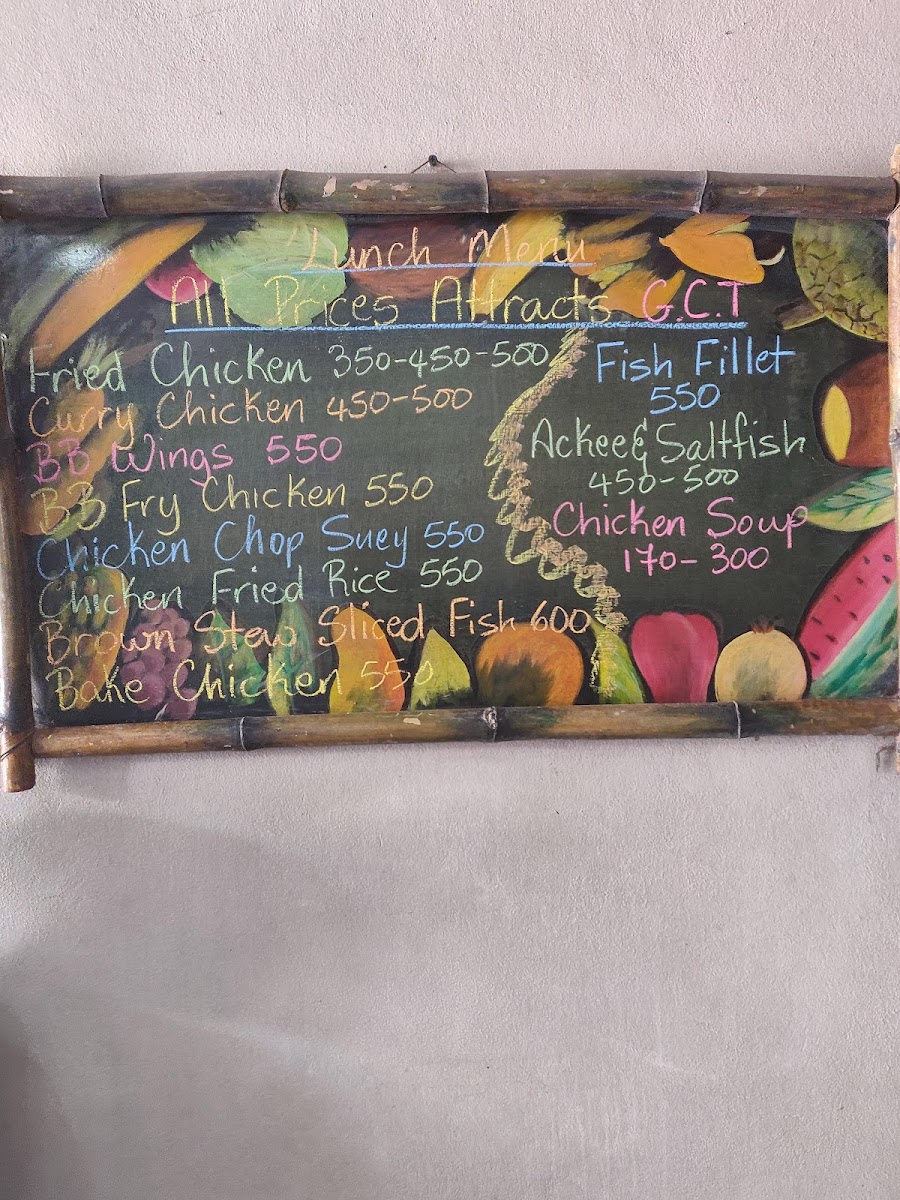 Lunch Menu
All Prices Attracts G.C.T
Fried Chicken 350-450-500
Curry Chicken 450-500
BB Wings 550
BB Fry Chicken 550
Chicken Chop Suey 550
Chicken Fried Rice 550
Brown Stew Sliced Fish 600
Bake Chicken 550
Fish Fillet
550
Ackee & Saltfish
450-500
Chicken Soup
170-300